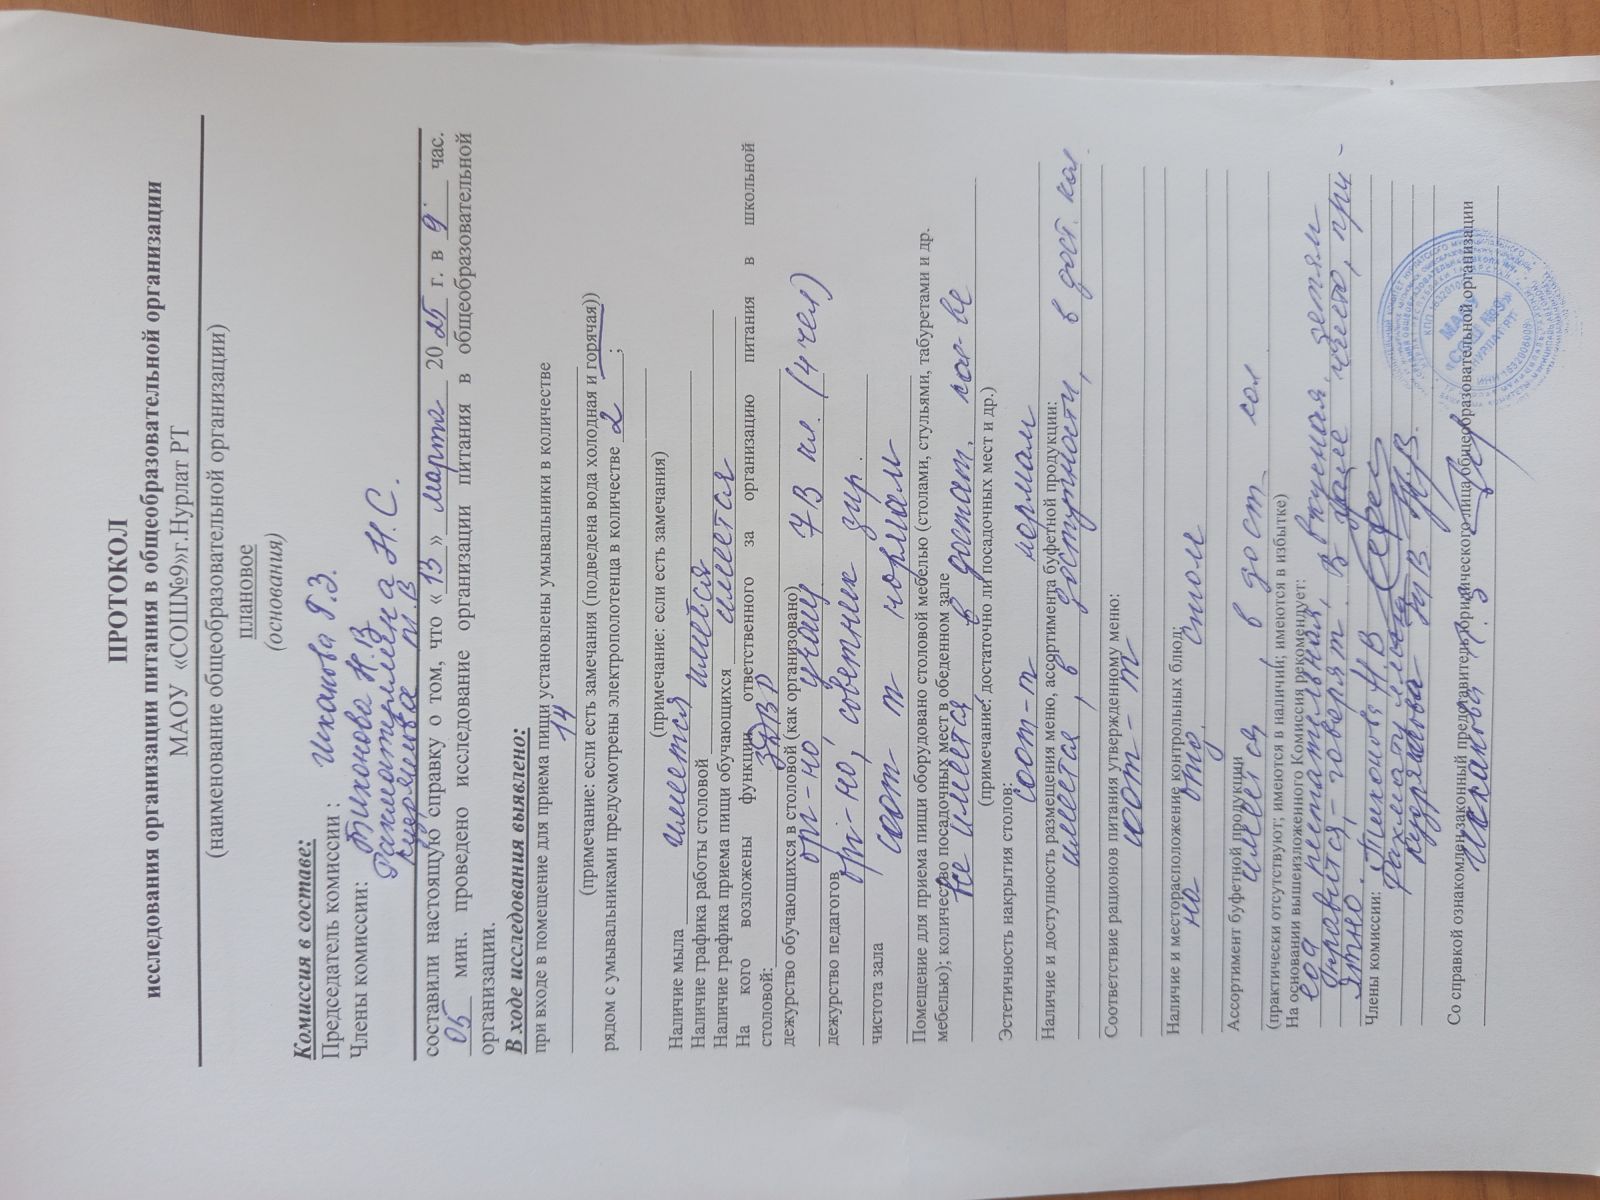 ПРОТОКОЛ
исследования организации питания в общеобразовательной организации
МАОУ «СОШ№9»г.Нурлат РТ
(наименование общеобразовательной организации)
плановое
(основания)
Комиссия в составе:
Председатель комиссии : Исхакова Г.З.
Члены комиссии: Тихонова Н.В
Рахматуллина Н.С.
Кудряшова Т.В
составили настоящую справку о том, что « 13 » марта 2025 г. в 9 час.
05 мин. проведено исследование организации питания в общеобразовательной
организации.
В ходе исследования выявлено:
при входе в помещение для приема пищи установлены умывальники в количестве
14
(примечание: если есть замечания (подведена вода холодная и горячая))
рядом с умывальниками предусмотрены электрополотенца в количестве 2 ;
(примечание: если есть замечания)
Наличие мыла имеется
Наличие графика работы столовой имеется
Наличие графика приема пищи обучающихся имеется
На кого возложены функции ответственного за организацию питания в школьной
столовой: ЗДВР
дежурство обучающихся в столовой (как организовано)
орг-но учащ 7В кл. (4 чел)
дежурство педагогов орг-но, советник дир.
чистота зала соот-т нормам
Помещение для приема пищи оборудовано столовой мебелью (столами, стульями, табуретами и др.
мебелью); количество посадочных мест в обеденном зале
все имеется в достат. кол-ве
(примечание: достаточно ли посадочных мест и др.)
Эстетичность накрытия столов: соот-т нормам
Наличие и доступность размещения меню, ассортимента буфетной продукции:
имеется, в доступности, в дост. кол.
Соответствие рационов питания утвержденному меню:
соот-т
Наличие и месторасположение контрольных блюд:
на отд. столе
Ассортимент буфетной продукции имеется, в дост. кол
(практически отсутствуют; имеются в наличии; имеются в избытке)
На основании вышеизложенного Комиссия рекомендует:
еда питательная, вкусная, детям
нравится, - говорят. В зале чисто, при-
ятно.
Члены комиссии: Тихонова Н.В
Рахматуллина
Кудряшова Т.В
Со справкой ознакомлен законный представитель юридического лица общеобразовательной организации
Исхакова Г.З
МАОУ
«СОШ №9»
Г.НУРЛАТ РТ